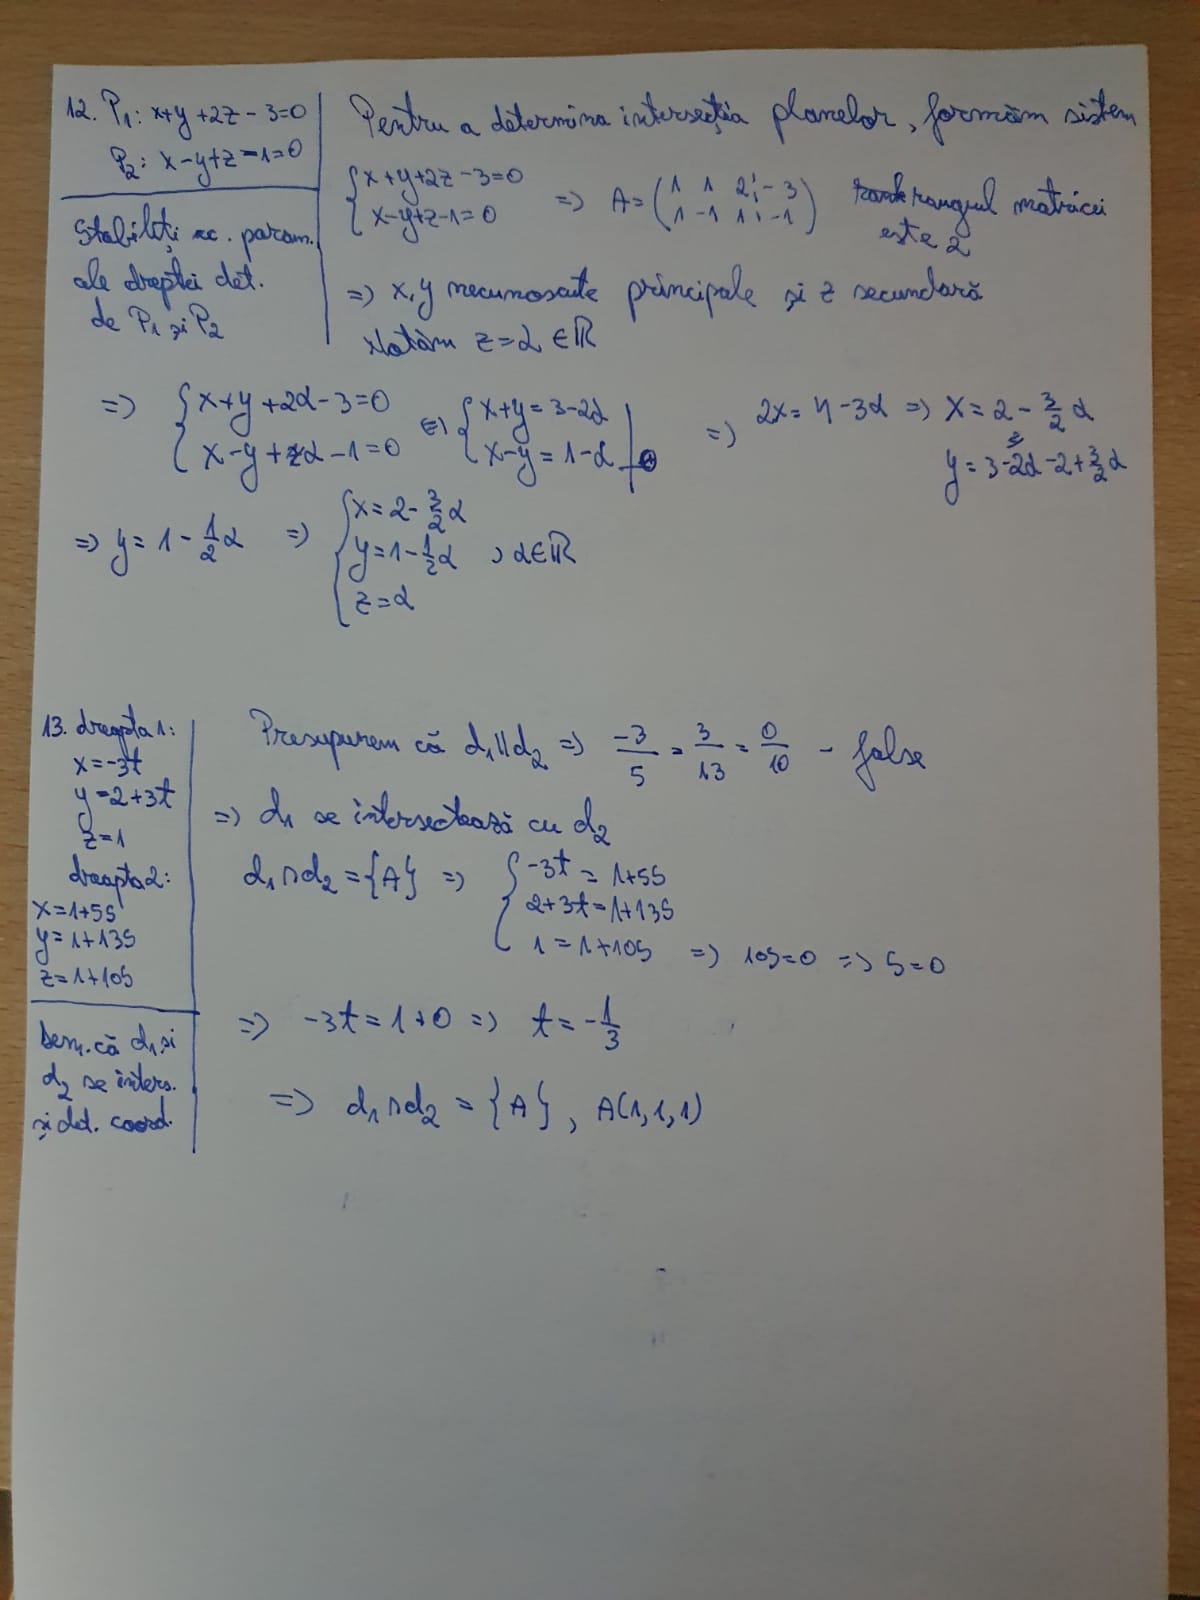 12. P1: x+y+2z-3=0
P2: x-y+z-1=0
Stabiliți ec. param.
ale dreptei det.
de P1 și P2
Pentru a determina intersecția planelor, formăm sistem
{x+y+2z-3=0
x-y+z-1=0
=> A=(1 1 2 ¦ -3
1 -1 1 ¦ -1) rangul matricei
este 2
=> x,y necunoscute principale și z secundară
Notăm z=α ∈ℝ
=> {x+y+2α-3=0
x-y+α-1=0
<=> {x+y=3-2α
x-y=1-α | +
=> 2x=4-3α => x=2-3/2 α
y=3-2α-2+3/2 α
=> y=1-1/2 α => {x=2-3/2 α
y=1-1/2 α , α∈ℝ
z=α
13. dreapta 1:
x=-3t
y=2+3t
z=1
dreapta 2:
x=1+5s
y=1+13s
z=1+10s
Dem. că d1 și
d2 se inters.
și det. coord.
Presupunem că d1||d2 => -3/5 = 3/13 = 0/10 - false
=> d1 se intersectează cu d2
d1∩d2={A} => {-3t=1+5s
2+3t=1+13s
1=1+10s => 10s=0 => s=0
=> -3t=1+0 => t=-1/3
=> d1∩d2={A}, A(1,1,1)